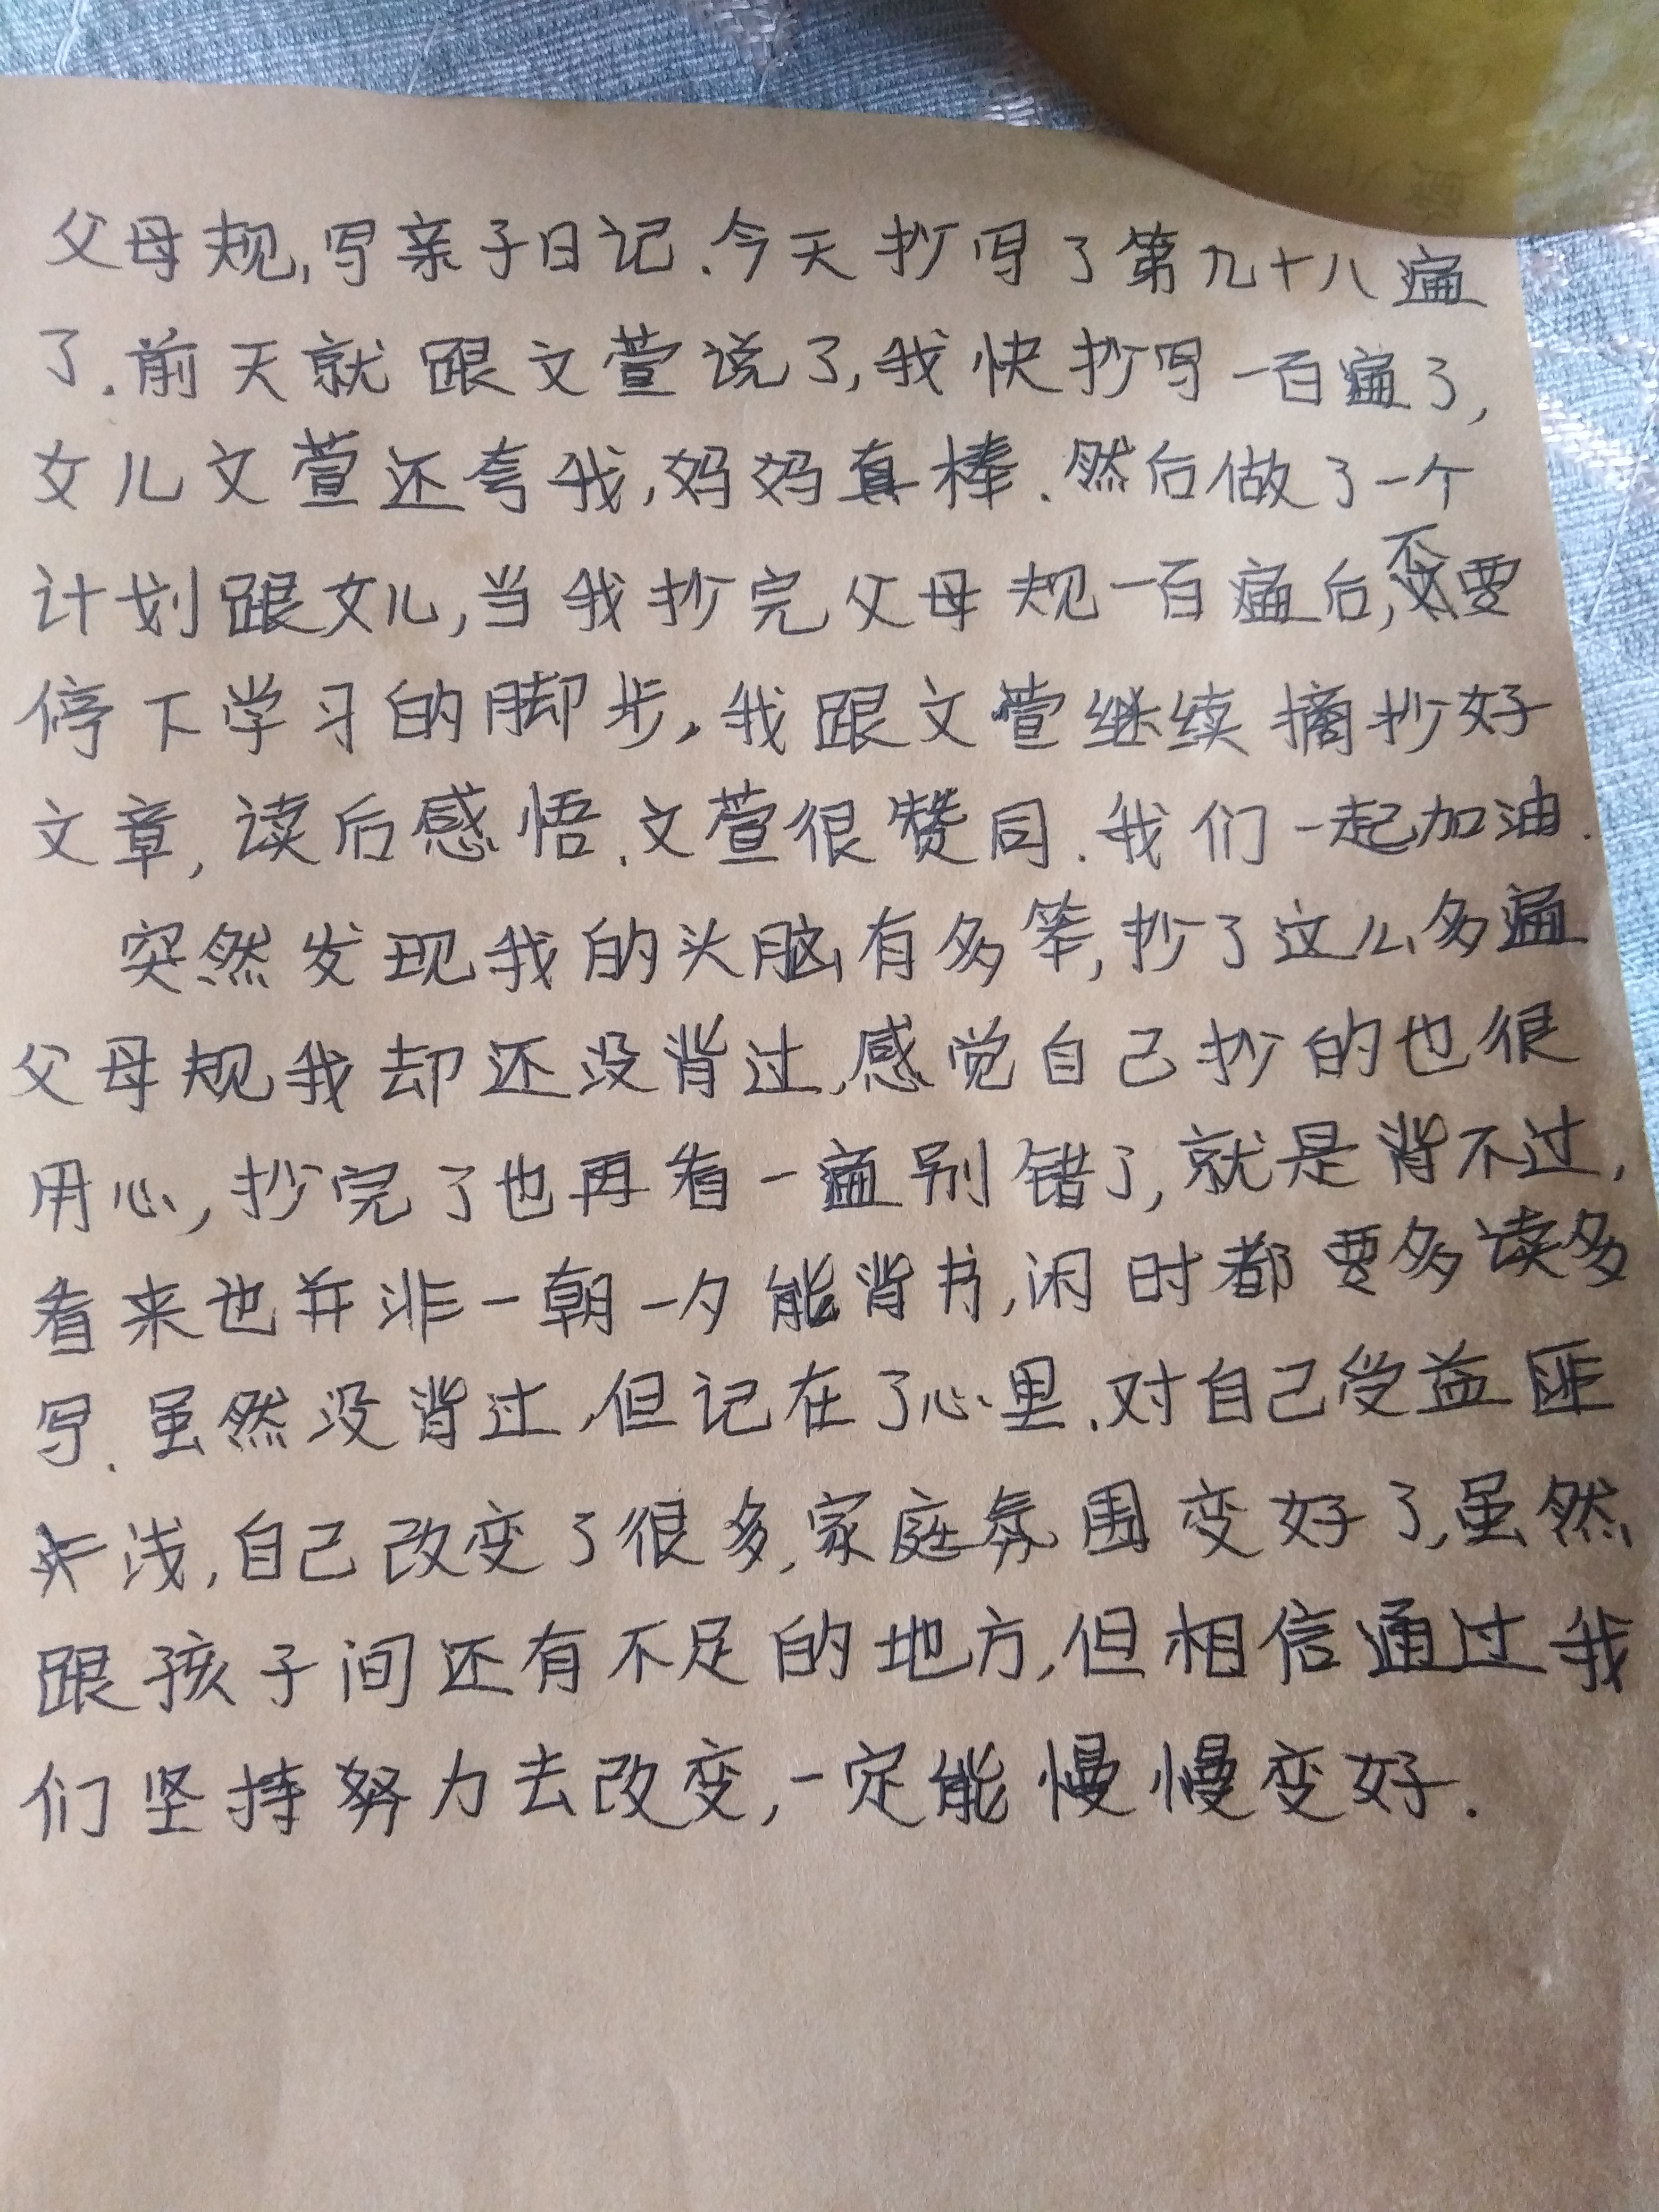 父母规,写亲子日记.今天抄写了第九十八遍
了.前天就跟文萱说了,我快抄写一百遍了,
女儿文萱还夸我,妈妈真棒.然后做了一个
计划跟女儿,当我抄完父母规一百遍后,不要
停下学习的脚步,我跟文萱继续摘抄好
文章,读后感悟.文萱很赞同.我们一起加油.
突然发现我的头脑有多笨,抄了这么多遍
父母规我却还没背过,感觉自己抄的也很
用心,抄完了也再看一遍别错了,就是背不过,
看来也并非一朝一夕能背书,闲时都要多读多
写.虽然没背过,但记在了心里.对自己受益匪
浅,自己改变了很多,家庭氛围变好了,虽然
跟孩子间还有不足的地方,但相信通过我
们坚持努力去改变,一定能慢慢变好.